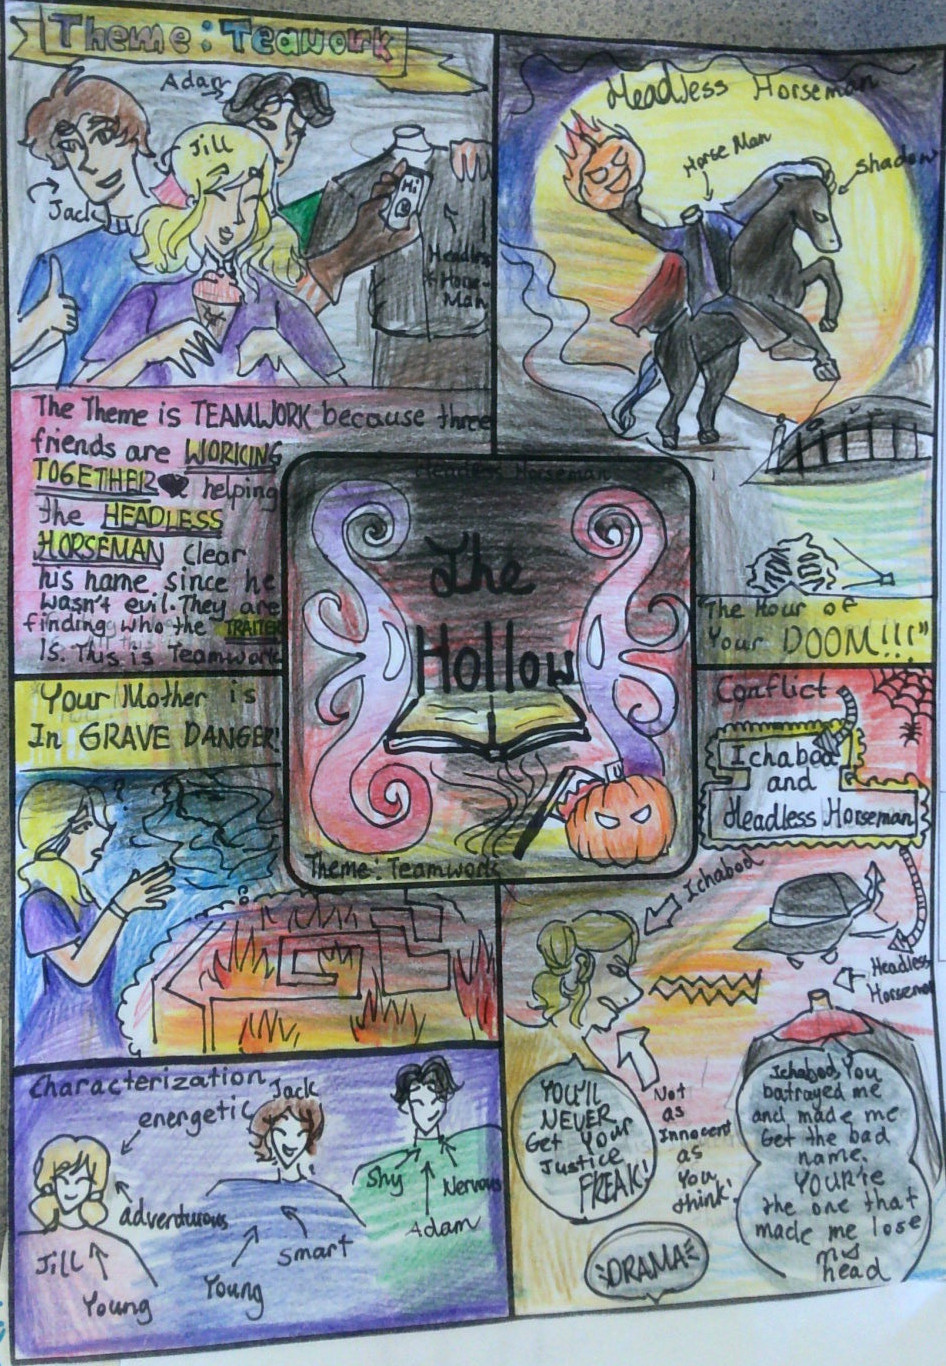 Theme: Teawork
Adam
Jill
Jack
Hi
Headless
Horse-
Man
The Theme is TEAMWORK because three
friends are WORKING
TOGETHER helping
the HEADLESS
HORSEMAN clear
his name since he
wasn't evil. They are
finding who the TRAITER
Is. This is Teamwork
Headless Horseman
Horse Man
Shadow
"The Hour of
Your DOOM!!!"
Headless Horseman
The
Hollow
Theme: Teamwork
Your Mother is
In GRAVE DANGER!
Conflict
Ichabod
and
Headless Horseman
Ichabod
Headless
Horseman
YOU'LL
NEVER
Get Your
Justice
FREAK!
Not
as
Innocent
as
You
think!
Ichabod, You
batrayed me
and made me
Get the bad
name.
YOUR're
the one that
made me lose
my
head
DRAMA
Characterization
energetic
Jack
adverdurous
Jill
Young
Young
Smart
Shy
Nervous
Adam